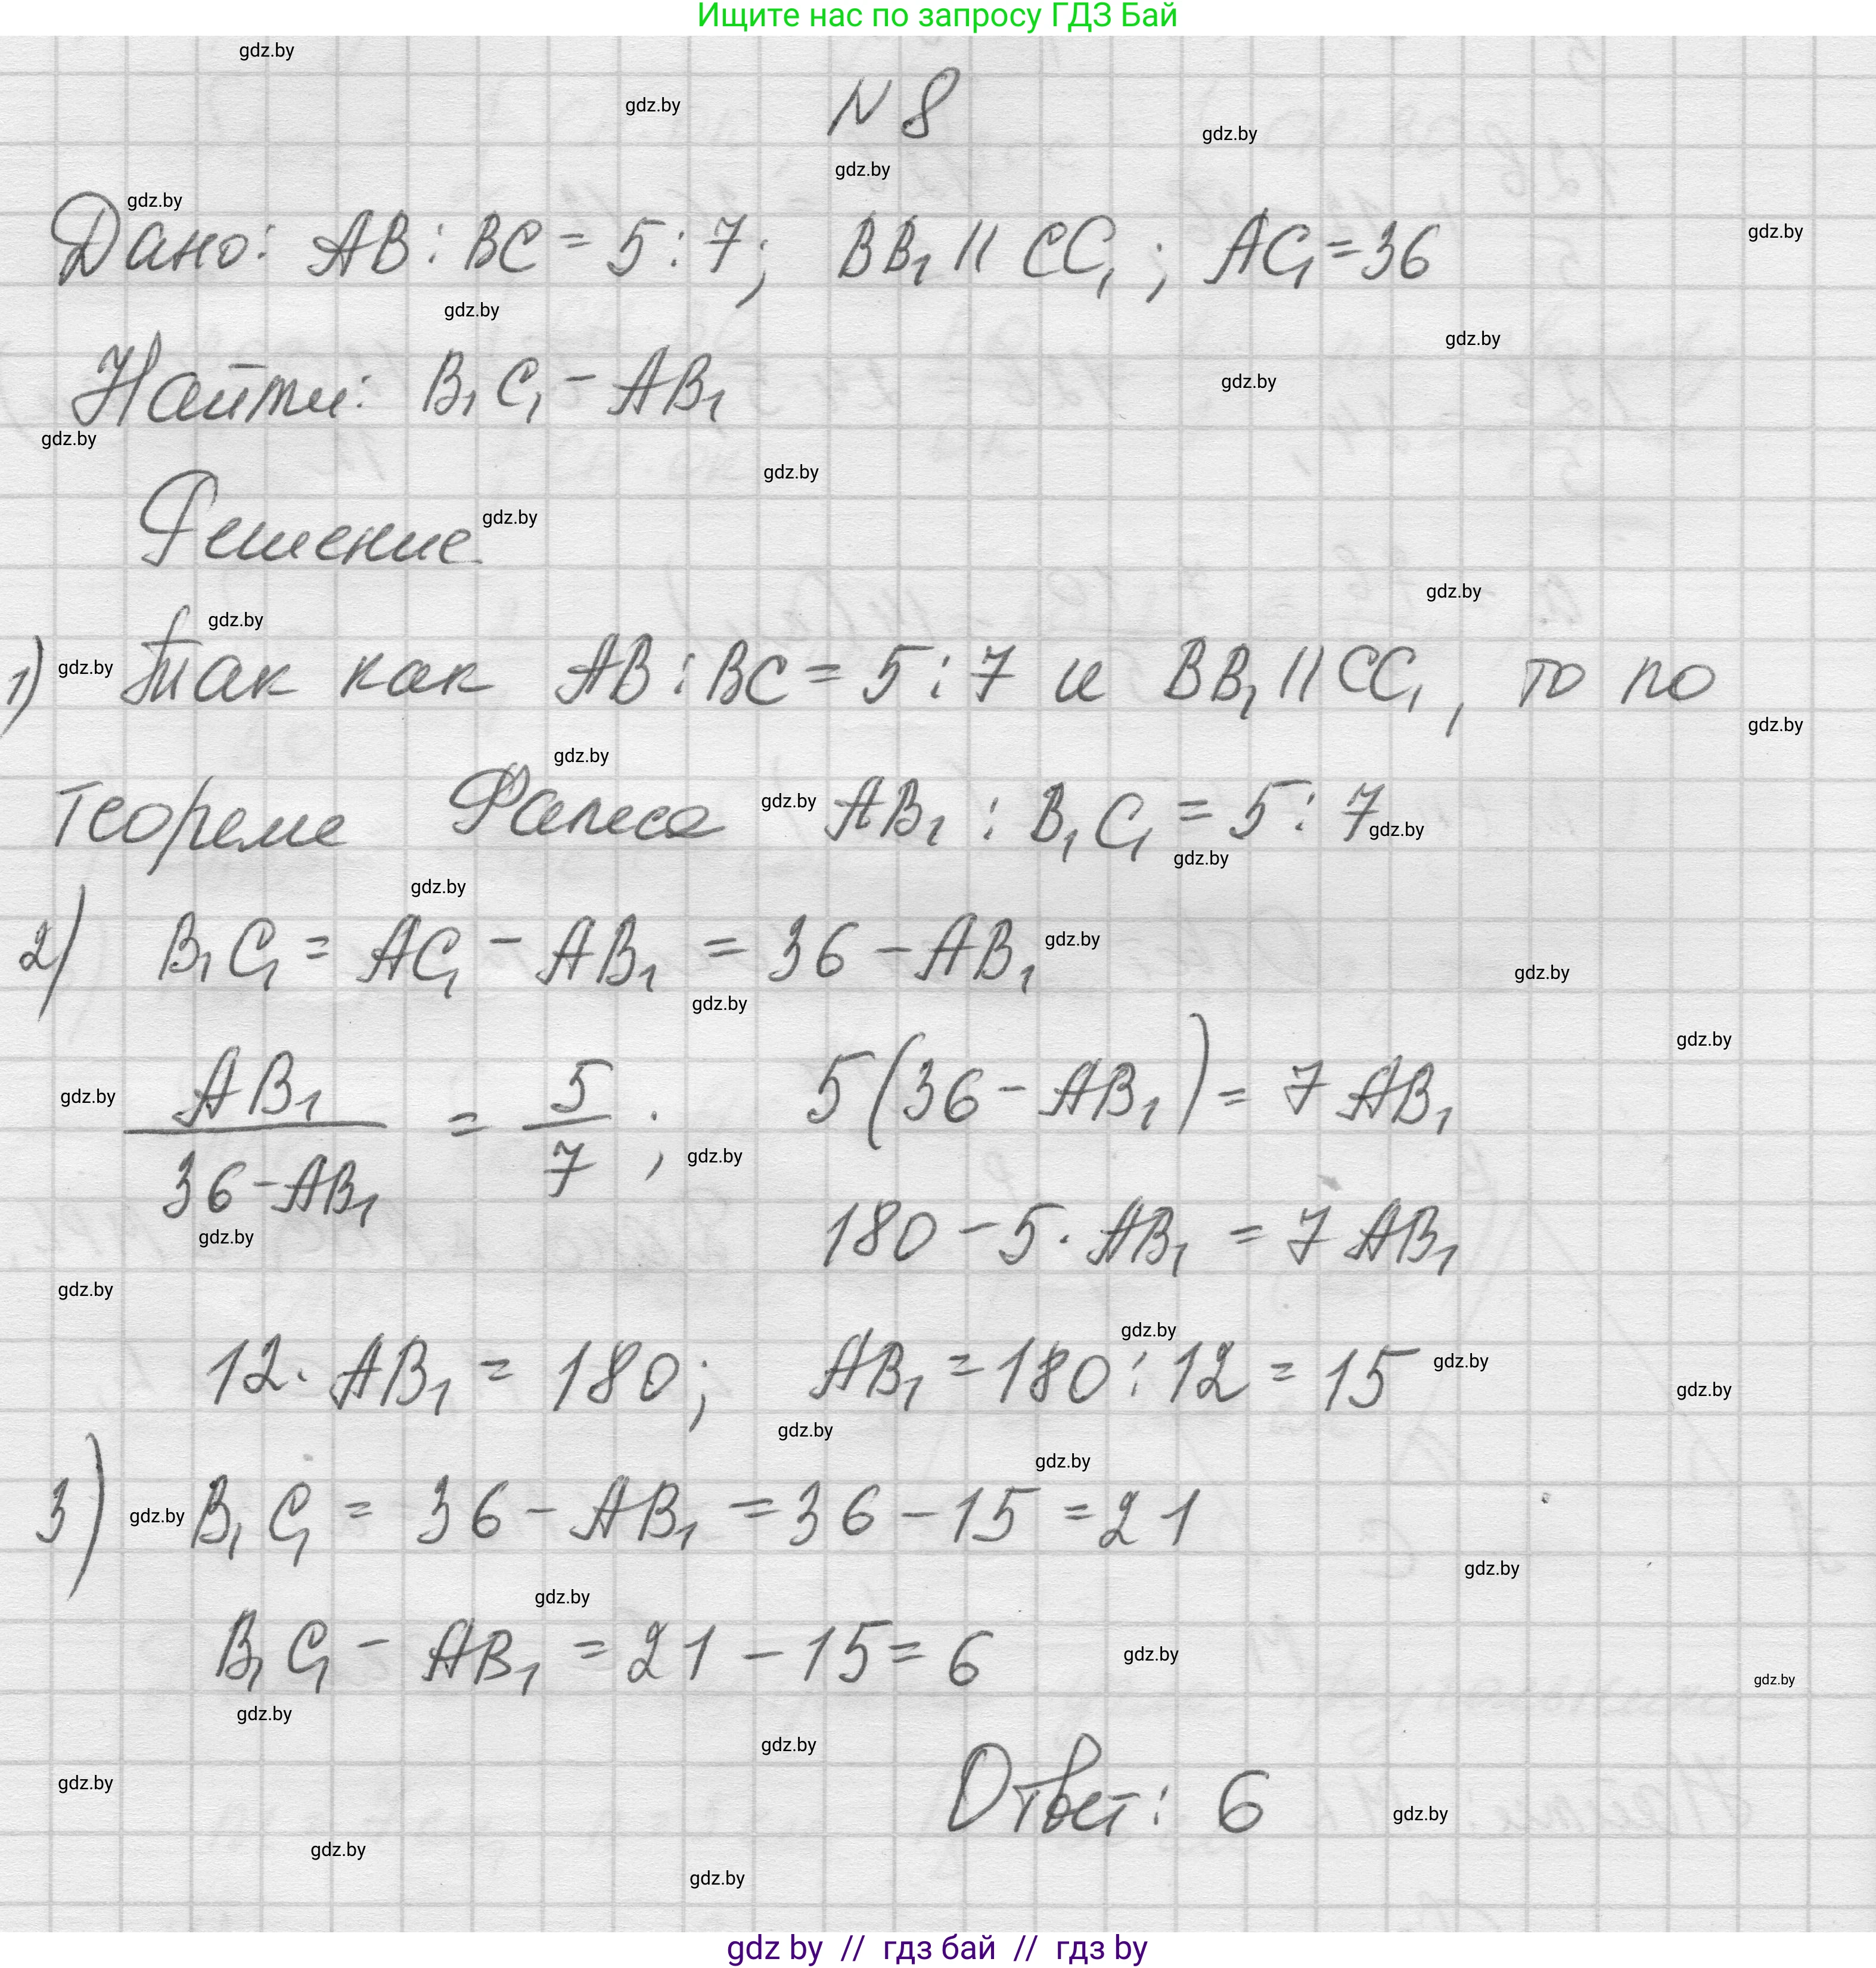 Ищите нас по запросу ГДЗ Бай
gdz.by
gdz.by
N 8
gdz.by
gdz.by
gdz.by
Дано: AB : BC = 5 : 7; BB₁ || CC₁ ; AC₁ = 36
gdz.by
gdz.by
gdz.by
Найти: B₁C₁ - AB₁
gdz.by
gdz.by
gdz.by
Решение.
gdz.by
gdz.by
gdz.by
1) gdz.by Так как AB : BC = 5 : 7 и BB₁ || CC₁, то по
gdz.by
gdz.by
теореме Фалеса gdz.by AB₁ : B₁C₁ = 5 : 7 gdz.by
gdz.by
gdz.by
2) B₁C₁ = AC₁ - AB₁ = 36 - AB₁ gdz.by
gdz.by
gdz.by
gdz.by
gdz.by AB₁ / 36 - AB₁ = 5 / 7 ; 5(36 - AB₁) = 7 AB₁
gdz.by
gdz.by
180 - 5 · AB₁ = 7 AB₁
gdz.by
gdz.by
12 · AB₁ = 180; AB₁ = 180 : 12 = 15 gdz.by
gdz.by
gdz.by
gdz.by
3) gdz.by B₁C₁ = 36 - AB₁ = 36 - 15 = 21
gdz.by
gdz.by
B₁C₁ - AB₁ = 21 - 15 = 6
gdz.by
gdz.by
gdz.by
gdz.by
gdz.by
Ответ: 6
gdz.by
gdz.by
gdz.by
gdz by // гдз бай // гдз by